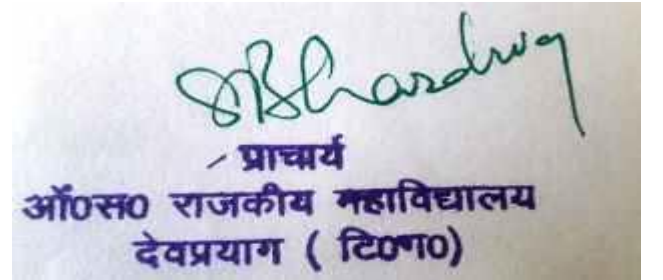 SBhardwaj
प्राचार्य
ओं०स० राजकीय महाविद्यालय
देवप्रयाग ( टि०ग०)